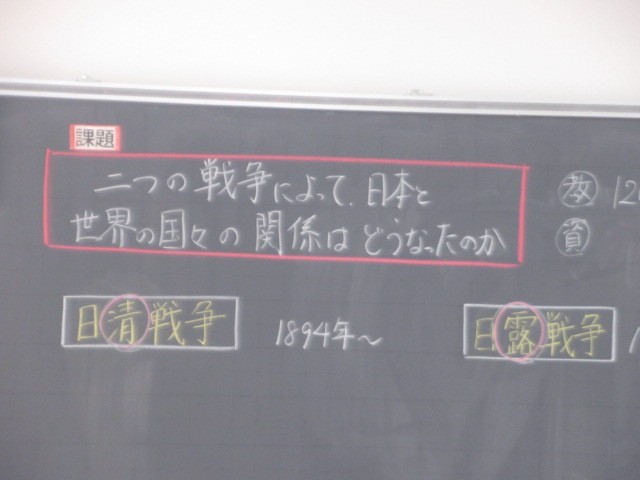 課題
二つの戦争によって、日本と
世界の国々の関係はどうなったのか
教 12
資
日清戦争 1894年～ 日露戦争